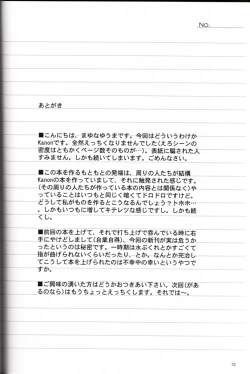 No.
あとがき
■こんにちは、まゆなゆうまです。今回はどういうわけか
Kanonです。全然えっちくなりませんでした(えろシーンの
密度はともかくページ数そのものが…)。表紙に騙された人
すみません。しかも続いてしまいます。ごめんなさい。
■この本を作るもともとの発端は、周りの人たちが結構
Kanonの本を作っていまして、それに触発された感じです。
(その周りの人たちが作っている本の内容とは関係なく)や
っていることはいつもと同じで間違ってドロドロですけど。
どうして私がものを作るとこうなるんでしょう?トホホ…
。しかもいつもに増してキテレツな感じですし。しかも続
くし。
■前回の本を上げて、それで打ち上げで呑んでいる時に右
手にやけどしまして(自業自得)、今回の新刊が実は危うか
ったというのは秘密です。一時期は水ぶくれとかすごくて
指が曲げられないくらいだったり、とか。なんとか完治し
てこうして本を上げられたのは不幸中の幸いというやつで
すか。
■ご興味の湧いた方はどうかおつきあい下さい。次回(が
あるのなら)はもうちょっとえっちくします。それでは〜。